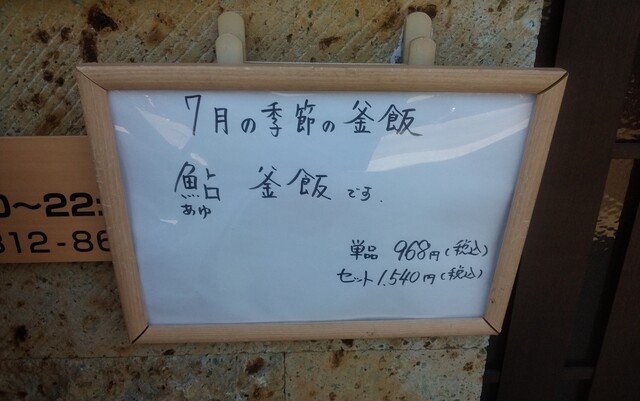 7月の季節の釜飯
鮎 釜飯です.
あゆ
単品 968円(税込)
セット 1.540円(税込)
0〜22:
312-86